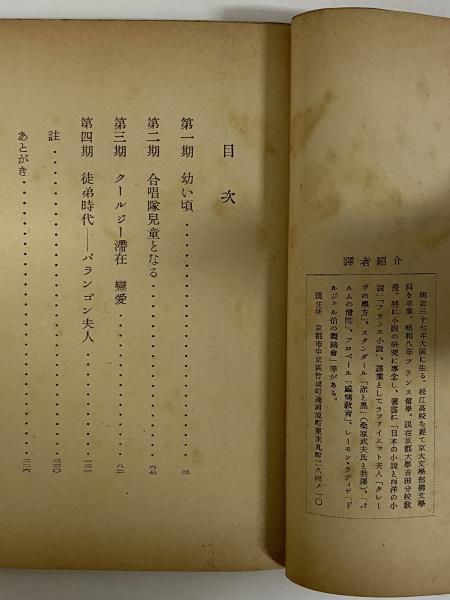 譯者紹介
明治三十七年大阪に生る。松江高校を經て京大文學部佛文學
科を卒業。昭和八年フランス留學。現在京都大學吉田分校教
授。特に小説の研究に專念し、著書に「日本の小説と西洋の小
説」「フランス小説」、譯業としてラファイエット夫人「クレー
ヴの奥方」、スタンダール「赤と黒」(桑原武夫氏と共譯)、「パ
ルムの僧院」、フロベール「感情教育」、レーモン・ラディゲ「ド
ルジェル伯の舞踏會」等がある。
現住所 京都市中京區竹屋町通河原町東末丸町二八四ノ一〇
目次
第一期 幼い頃
第二期 合唱隊兒童となる 六七
第三期 クールジー滯在 戀愛 八二
第四期 徒弟時代――パランゴン夫人
註
あとがき